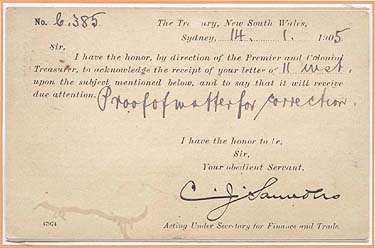 No. C.385 The Treasury, New South Wales,
Sydney, 14. 1. 1905
Sir,
I have the honor, by direction of the Premier and Colonial
Treasurer, to acknowledge the receipt of your letter of 11 inst,
upon the subject mentioned below, and to say that it will receive
due attention. Proof of matter for correction.
I have the honor to be,
Sir,
Your obedient Servant,
C. J. Saunders
47974 Acting Under Secretary for Finance and Trade.